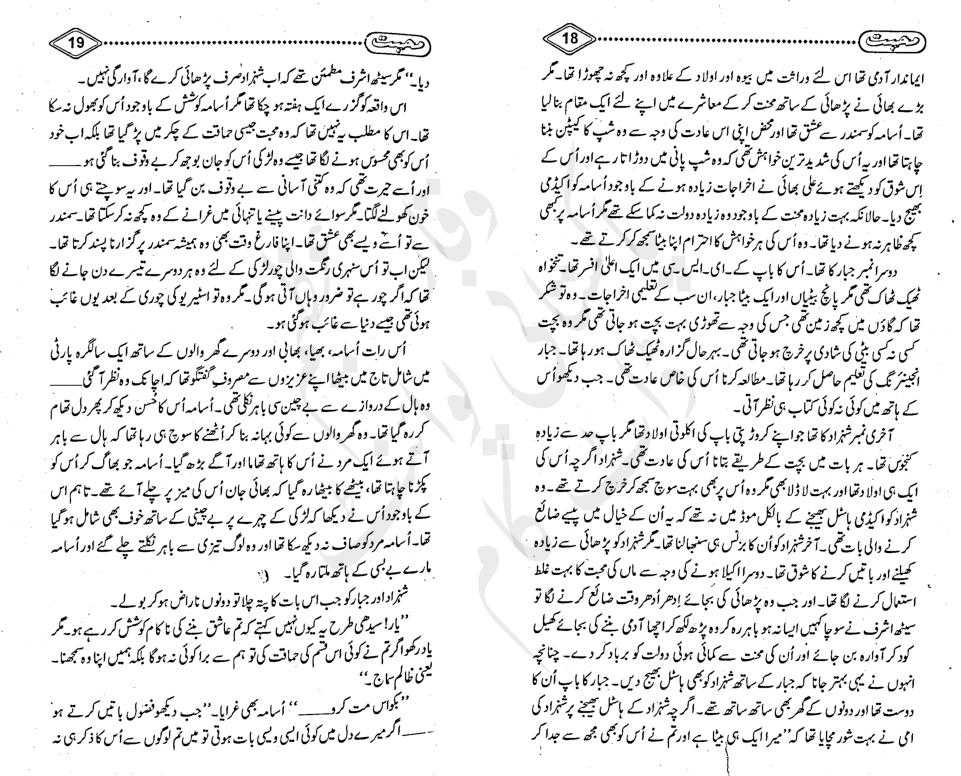 محبت 18
ایماندار آدمی تھا اس لئے وراثت میں بیوہ اور اولاد کے علاوہ اور کچھ نہ چھوڑا تھا۔ مگر
بڑے بھائی نے پڑھائی کے ساتھ محنت کر کے معاشرے میں اپنے لئے ایک مقام بنا لیا
تھا۔ اُسامہ کو سمندر سے عشق تھا اور محض اپنی اس عادت کی وجہ سے وہ شپ کا کیپٹن بننا
چاہتا تھا اور یہ اُس کی شدید ترین خواہش تھی کہ وہ شپ پانی میں دوڑاتا رہے اور اُس کے
اِس شوق کو دیکھتے ہوئے علی بھائی نے اخراجات زیادہ ہونے کے باوجود اُسامہ کو اکیڈمی
بھیج دیا۔ حالانکہ بہت زیادہ محنت کے باوجود وہ زیادہ دولت نہ کما سکے تھے مگر اُسامہ پر کبھی
کچھ ظاہر نہ ہونے دیا تھا۔ وہ اُس کی ہر خواہش کا احترام اپنا بیٹا سمجھ کر کرتے تھے۔
دوسرا نمبر جبار کا تھا۔ اُس کا باپ کے۔ ای۔ ایس۔ سی میں ایک اعلیٰ افسر تھا۔ تنخواہ
ٹھیک ٹھاک تھی مگر پانچ بیٹیاں اور ایک بیٹا جبار، ان سب کے تعلیمی اخراجات۔ وہ تو شکر
تھا کہ گاؤں میں کچھ زمین تھی جس کی وجہ سے تھوڑی بہت بچت ہو جاتی تھی مگر وہ بچت
کسی نہ کسی بیٹی کی شادی پر خرچ ہو جاتی تھی۔ بہرحال گزارہ ٹھیک ٹھاک ہو رہا تھا۔ جبار
انجینئرنگ کی تعلیم حاصل کر رہا تھا۔ مطالعہ کرنا اُس کی خاص عادت تھی۔ جب دیکھو اُس
کے ہاتھ میں کوئی نہ کوئی کتاب ہی نظر آتی۔
آخری نمبر شہزاد کا تھا جو اپنے کروڑ پتی باپ کی اکلوتی اولاد تھا مگر باپ حد سے زیادہ
کنجوس تھا۔ ہر بات میں بچت کے طریقے بتانا اُس کی عادت تھی۔ شہزاد اگرچہ اُس کی
ایک ہی اولاد تھا اور بہت لاڈلا بھی مگر وہ اُس پر بھی بہت سوچ سمجھ کر خرچ کرتے تھے۔ وہ
شہزاد کو اکیڈمی ہاسٹل بھیجنے کے بالکل موڈ میں نہ تھے کہ یہ اُن کے خیال میں پیسے ضائع
کرنے والی بات تھی۔ آخر شہزاد کو اُن کا بزنس ہی سنبھالنا تھا۔ مگر شہزاد کو پڑھائی سے زیادہ
کھیلنے اور باتیں کرنے کا شوق تھا۔ دوسرا اکیلا ہونے کی وجہ سے وہ ماں کی محبت کا بہت غلط
استعمال کرنے لگا تھا۔ اور جب وہ پڑھائی کی بجائے اِدھر اُدھر وقت ضائع کرنے لگا تو
سیٹھ اشرف نے سوچا کہیں ایسا نہ ہو باہر رہ کر وہ پڑھ لکھ کر اچھا آدمی بننے کی بجائے کھیل
کود کر آوارہ بن جائے اور اُن کی محنت سے کمائی ہوئی دولت کو برباد کر دے۔ چنانچہ
انہوں نے یہی بہتر جانا کہ جبار کے ساتھ شہزاد کو بھی ہاسٹل بھیج دیں۔ جبار کا باپ اُن کا
دوست تھا اور دونوں کے گھر بھی ساتھ ساتھ تھے۔ اگرچہ شہزاد کے ہاسٹل بھیجنے پر شہزاد کی
امی نے بہت شور مچایا تھا کہ ”میرا ایک ہی بیٹا ہے اور تم نے اُس کو بھی مجھ سے جدا کر
محبت 19
دیا۔“ مگر سیٹھ اشرف مطمئن تھے کہ اب شہزاد صرف پڑھائی کرے گا، آوارگی نہیں۔
اس واقعہ کو گزرے ایک ہفتہ ہو چکا تھا مگر اُسامہ کوشش کے باوجود اُس کو بھول نہ سکا
تھا۔ اس کا مطلب یہ نہیں تھا کہ وہ محبت جیسی حماقت کے چکر میں پڑ گیا تھا بلکہ اب خود
اُس کو بھی محسوس ہونے لگا تھا جیسے وہ لڑکی اُس کو جان بوجھ کر بے وقوف بنا گئی ہو ____
اور اُسے حیرت تھی کہ وہ کتنی آسانی سے بے وقوف بن گیا تھا۔ اور یہ سوچتے ہی اُس کا
خون کھولنے لگتا۔ مگر سوائے دانت پیسنے یا تنہائی میں غرانے کے وہ کچھ نہ کر سکتا تھا۔ سمندر
سے تو اُسے ویسے بھی عشق تھا۔ اپنا فارغ وقت بھی وہ ہمیشہ سمندر پر گزارنا پسند کرتا تھا۔
لیکن اب تو اُس سنہری رنگت والی چور لڑکی کے لئے وہ ہر دوسرے تیسرے دن جانے لگا
تھا کہ اگر چور ہے تو ضرور وہاں آتی ہو گی۔ مگر وہ تو اسٹیریو کی چوری کے بعد یوں غائب
ہوئی تھی جیسے دنیا سے غائب ہو گئی ہو۔
اُس رات اُسامہ، بھیا، بھابی اور دوسرے گھر والوں کے ساتھ ایک سالگرہ پارٹی
میں شامل تاج میں بیٹھا اپنے عزیزوں سے مصروف گفتگو تھا کہ اچانک وہ نظر آ گئی ____
وہ ہال کے دروازے سے بے چین سی باہر نکلی تھی۔ اُسامہ اُس کا حُسن دیکھ کر پھر دل تھام
کر رہ گیا تھا۔ وہ گھر والوں سے کوئی بہانہ بنا کر اُٹھنے کا سوچ ہی رہا تھا کہ ہال سے باہر
آتے ہوئے ایک مرد نے اُس کا ہاتھ تھاما اور آگے بڑھ گیا۔ اُسامہ جو بھاگ کر اُس کو
پکڑنا چاہتا تھا، بیٹھے کا بیٹھا رہ گیا کہ بھائی جان اُس کی میز پر چلے آئے تھے۔ تاہم اس
کے باوجود اُس نے دیکھا کہ لڑکی کے چہرے پر بے چینی کے ساتھ خوف بھی شامل ہو گیا
تھا۔ اُسامہ مرد کو صاف نہ دیکھ سکا تھا اور وہ لوگ تیزی سے باہر نکلتے چلے گئے اور اُسامہ
مارے بے بسی کے ہاتھ ملتا رہ گیا۔
شہزاد اور جبار کو جب اس بات کا پتہ چلا تو دونوں ناراض ہو کر بولے۔
”یار! سیدھی طرح یہ کیوں نہیں کہتے کہ تم عاشق بننے کی ناکام کوشش کر رہے ہو۔ مگر
یاد رکھو اگر تم نے کوئی اس قسم کی حماقت کی تو ہم سے برا کوئی نہ ہو گا بلکہ ہمیں اپنا وہ سمجھنا۔
یعنی ظالم سماج۔“
”بکواس مت کرو ____“ اُسامہ بھی غرایا۔ ”جب دیکھو فضول باتیں کرتے ہو
____ اگر میرے دل میں کوئی ایسی ویسی بات ہوتی تو میں تم لوگوں سے اُس کا ذکر ہی نہ